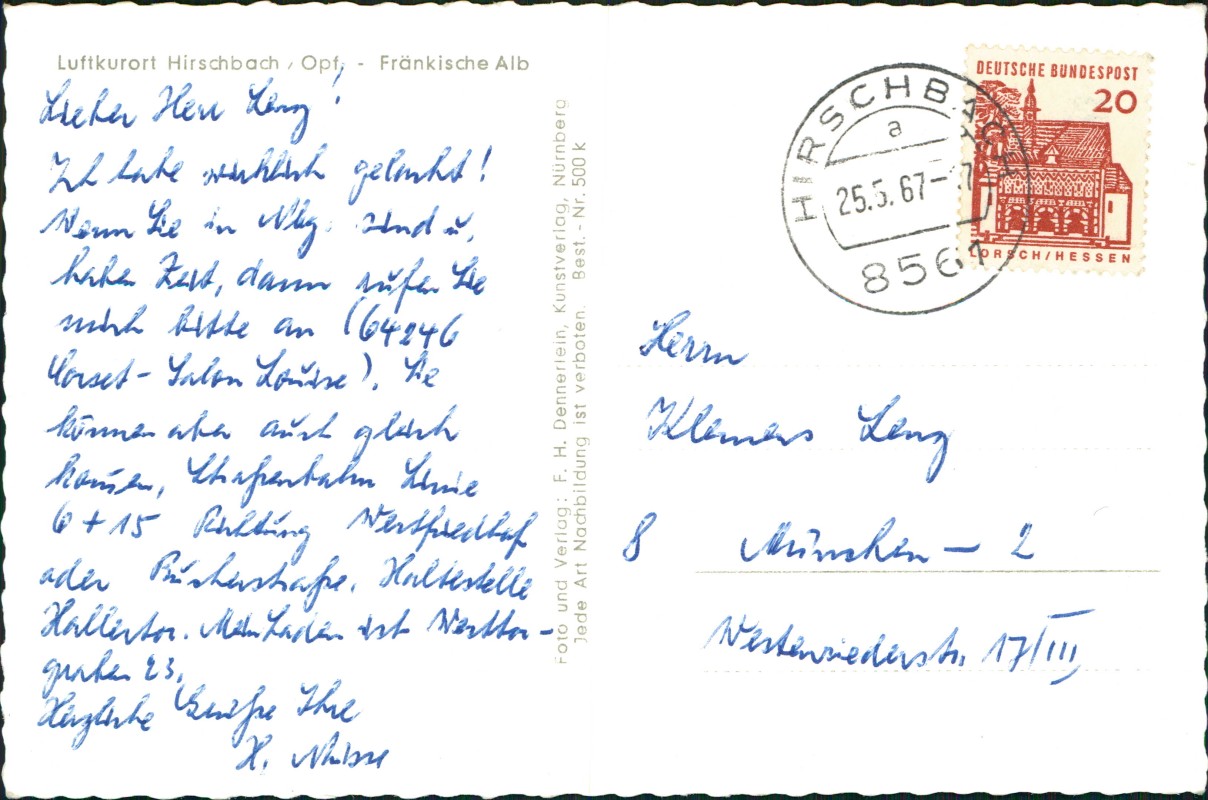 Luftkurort Hirschbach / Opf. - Fränkische Alb
Lieber Herr Lenz!
Ich habe wirklich gelacht!
Wenn Sie in Nbg. sind u.
haben Zeit, dann rufen Sie
mich bitte an (64246
Corset-Salon Louise). Sie
können aber auch gleich
kommen, Straßenbahn Linie
6 + 15 Richtung Westfriedhof
oder Bucherstraße. Haltestelle
Hallertor. Mein Laden ist Westtor-
graben 23.
Herzliche Grüße Ihre
H.
Foto und Verlag: F. H. Dennerlein, Kunstverlag, Nürnberg
Jede Art Nachbildung ist verboten. Best.-Nr. 500 k
HIRSCHBACH
a
25.5.67-
8561
DEUTSCHE BUNDESPOST
20
LORSCH/HESSEN
Herrn
Klemens Lenz
8 München - 2
Westenriederstr. 17/III